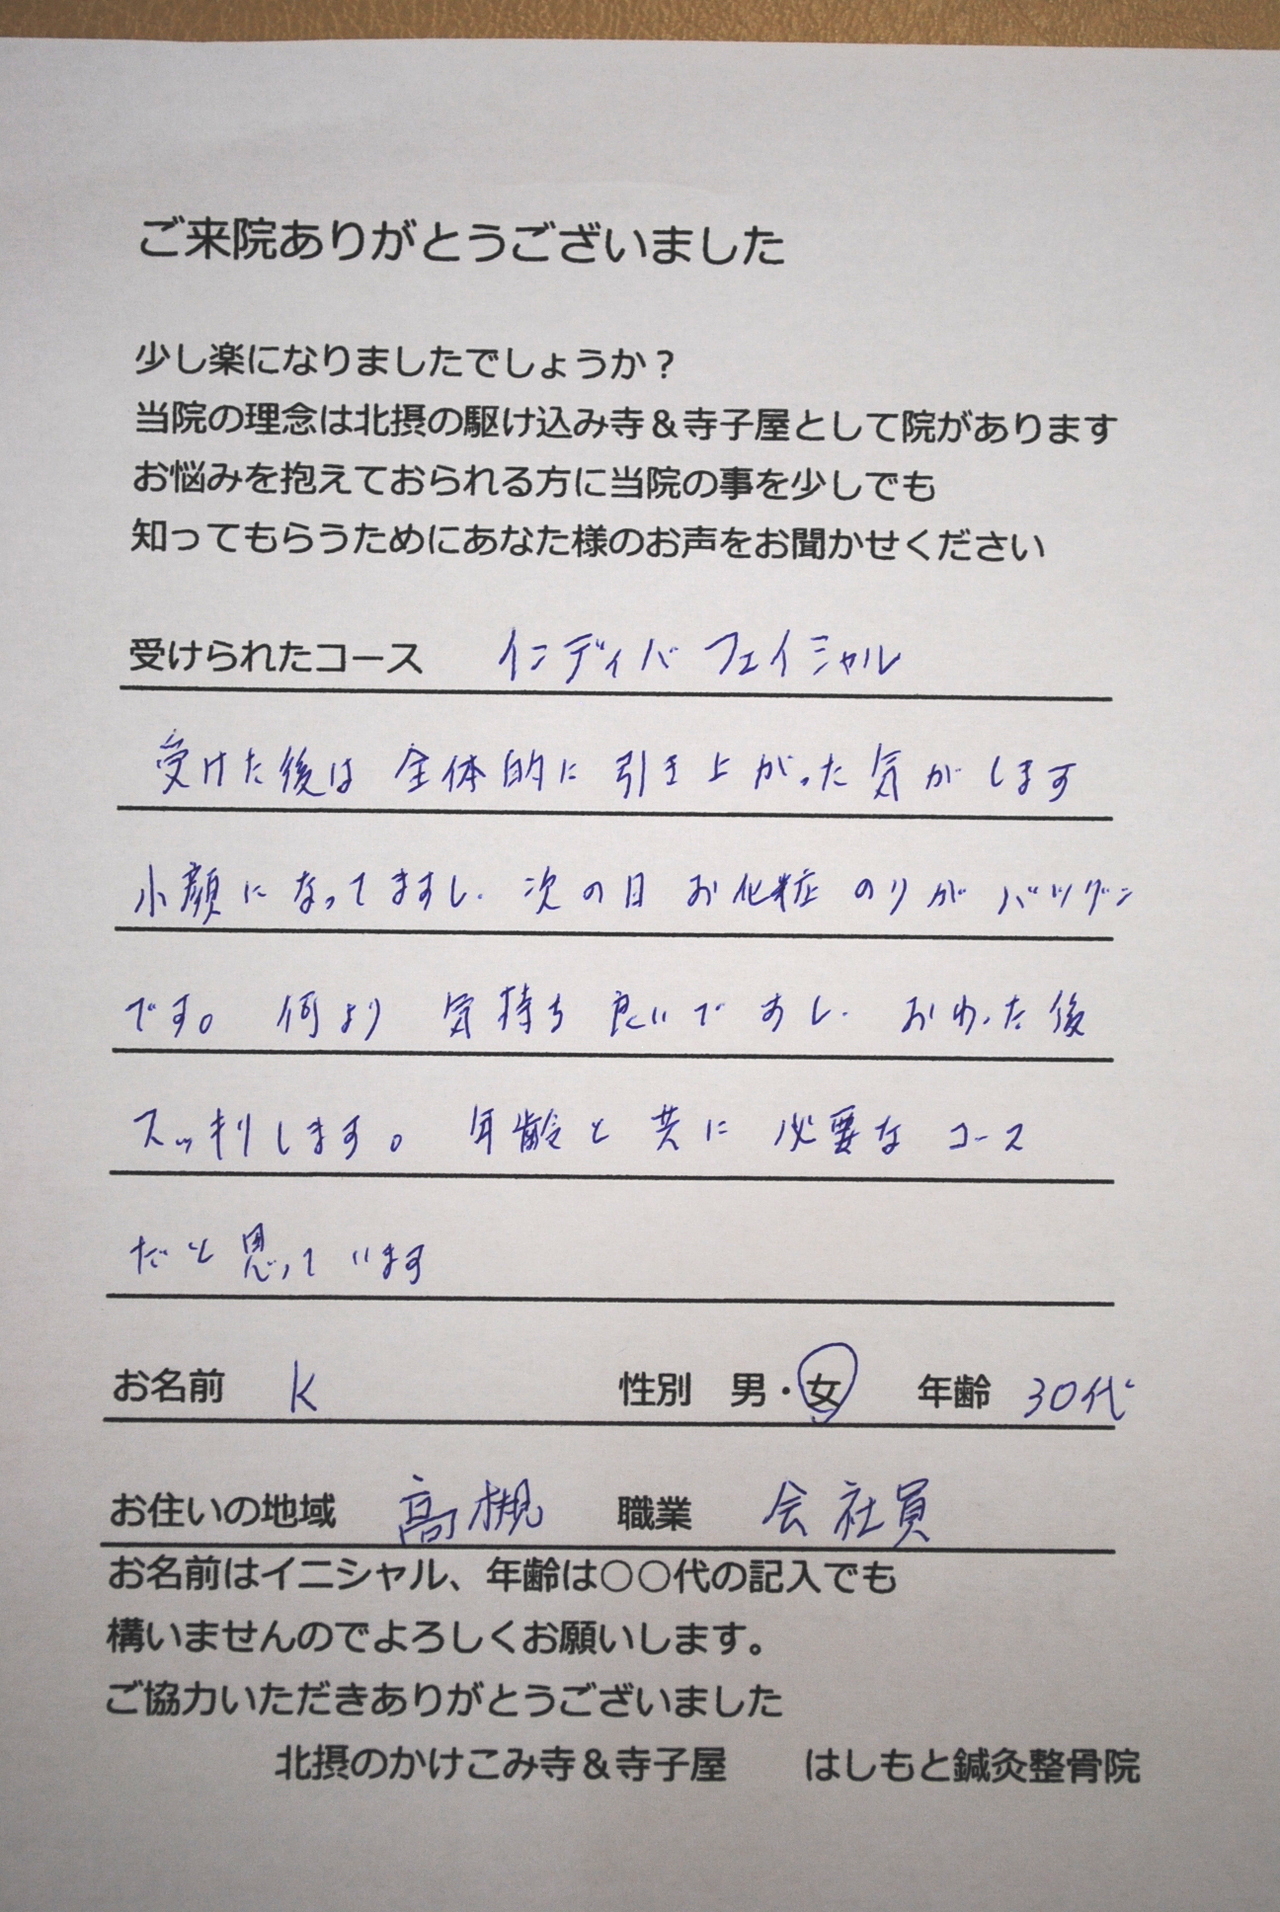 ご来院ありがとうございました
少し楽になりましたでしょうか？
当院の理念は北摂の駆け込み寺＆寺子屋として院があります
お悩みを抱えておられる方に当院の事を少しでも
知ってもらうためにあなた様のお声をお聞かせください
受けられたコース インディバ フェイシャル
受けた後は 全体的に 引き上がった気がします
小顔になってますし、次の日 お化粧 のりが バツグン
です。 何より 気持ち良いですし、おわった後
スッキリします。 年齢と共に 必要な コース
だと思っています
お名前 K 性別 男・女 年齢 30代
お住いの地域 高槻 職業 会社員
お名前はイニシャル、年齢は○○代の記入でも
構いませんのでよろしくお願いします。
ご協力いただきありがとうございました
北摂のかけこみ寺＆寺子屋 はしもと鍼灸整骨院